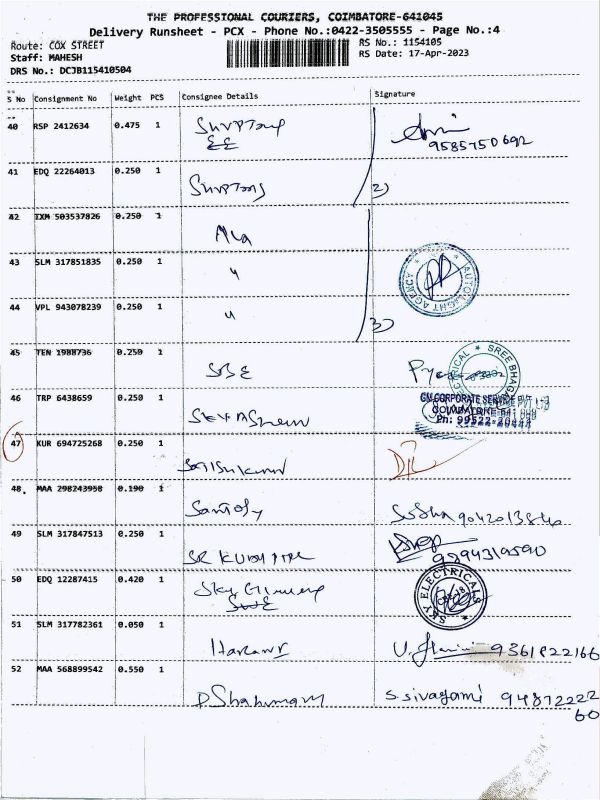 THE PROFESSIONAL COURIERS, COIMBATORE-641045
Delivery Runsheet - PCX - Phone No.:0422-3505555 - Page No.:4
Route: COX STREET
RS No.: 1154105
Staff: MAHESH
RS Date: 17-Apr-2023
DRS No.: DCJB115410504
S No Consignment No Weight PCS Consignee Details Signature
40 RSP 2412634 0.475 1
9585750692
41 EDQ 22264013 0.250 1 2)
42 IXM 503537826 0.250 1
43 SLM 317851835 0.250 1
AUTOLIGHT AGENCY
44 VPL 943078239 0.250 1 3)
45 TEN 1988736 0.250 1 SBE
ELECTRICAL * SREE BHAGA
46 TRP 6438659 0.250 1
CM CORPORATE SERVICE PVT LTD
COIMBATORE-641
Ph: 99522-20444
47 KUR 694725268 0.250 1 Satishkumar
48 MAA 298243958 0.190 1 Santosh Sudha 9042013846
49 SLM 317847513 0.250 1
9894319590
50 EDQ 12287415 0.420 1 Sky
SKY ELECTRICALS
51 SLM 317782361 0.050 1 9361822166
52 MAA 568899542 0.550 1 S.Sivagami 94872222
60